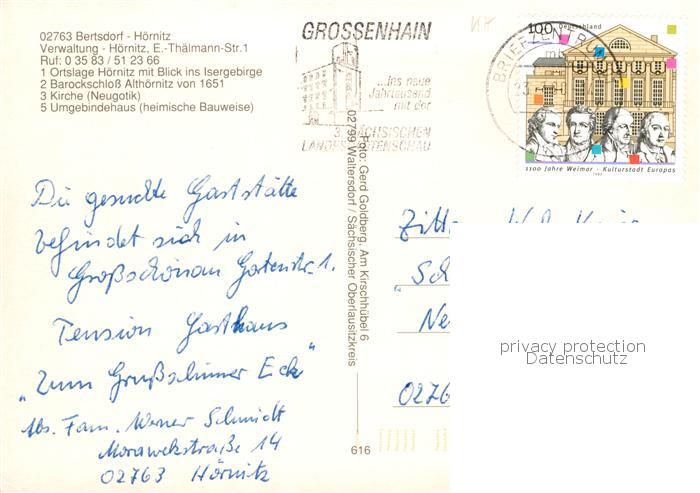 02763 Bertsdorf - Hörnitz
Verwaltung - Hörnitz, E.-Thälmann-Str.1
Ruf: 0 35 83 / 51 23 66
1 Ortslage Hörnitz mit Blick ins Isergebirge
2 Barockschloß Althörnitz von 1651
3 Kirche (Neugotik)
5 Umgebindehaus (heimische Bauweise)
GROSSENHAIN
...ins neue
Jahrtausend
mit der
3. SÄCHSISCHEN
LANDESGARTENSCHAU
BRIEFZENTRUM
100 Deutschland
1100 Jahre Weimar - Kulturstadt Europas
1999
Die gesuchte Gaststätte
befindet sich in
Großschönau Gartenstr. 1.
Pension Gasthaus
„Zum Grußschinner Eck"
Abs. Fam. Werner Schmidt
Morawekstraße 14
02763 Hörnitz
Foto: Gerd Goldberg, Am Kirschhübel 6
02799 Waltersdorf / Sächsischer Oberlausitzkreis
616
Zitt
„Sch
Ne
0276
privacy protection
Datenschutz